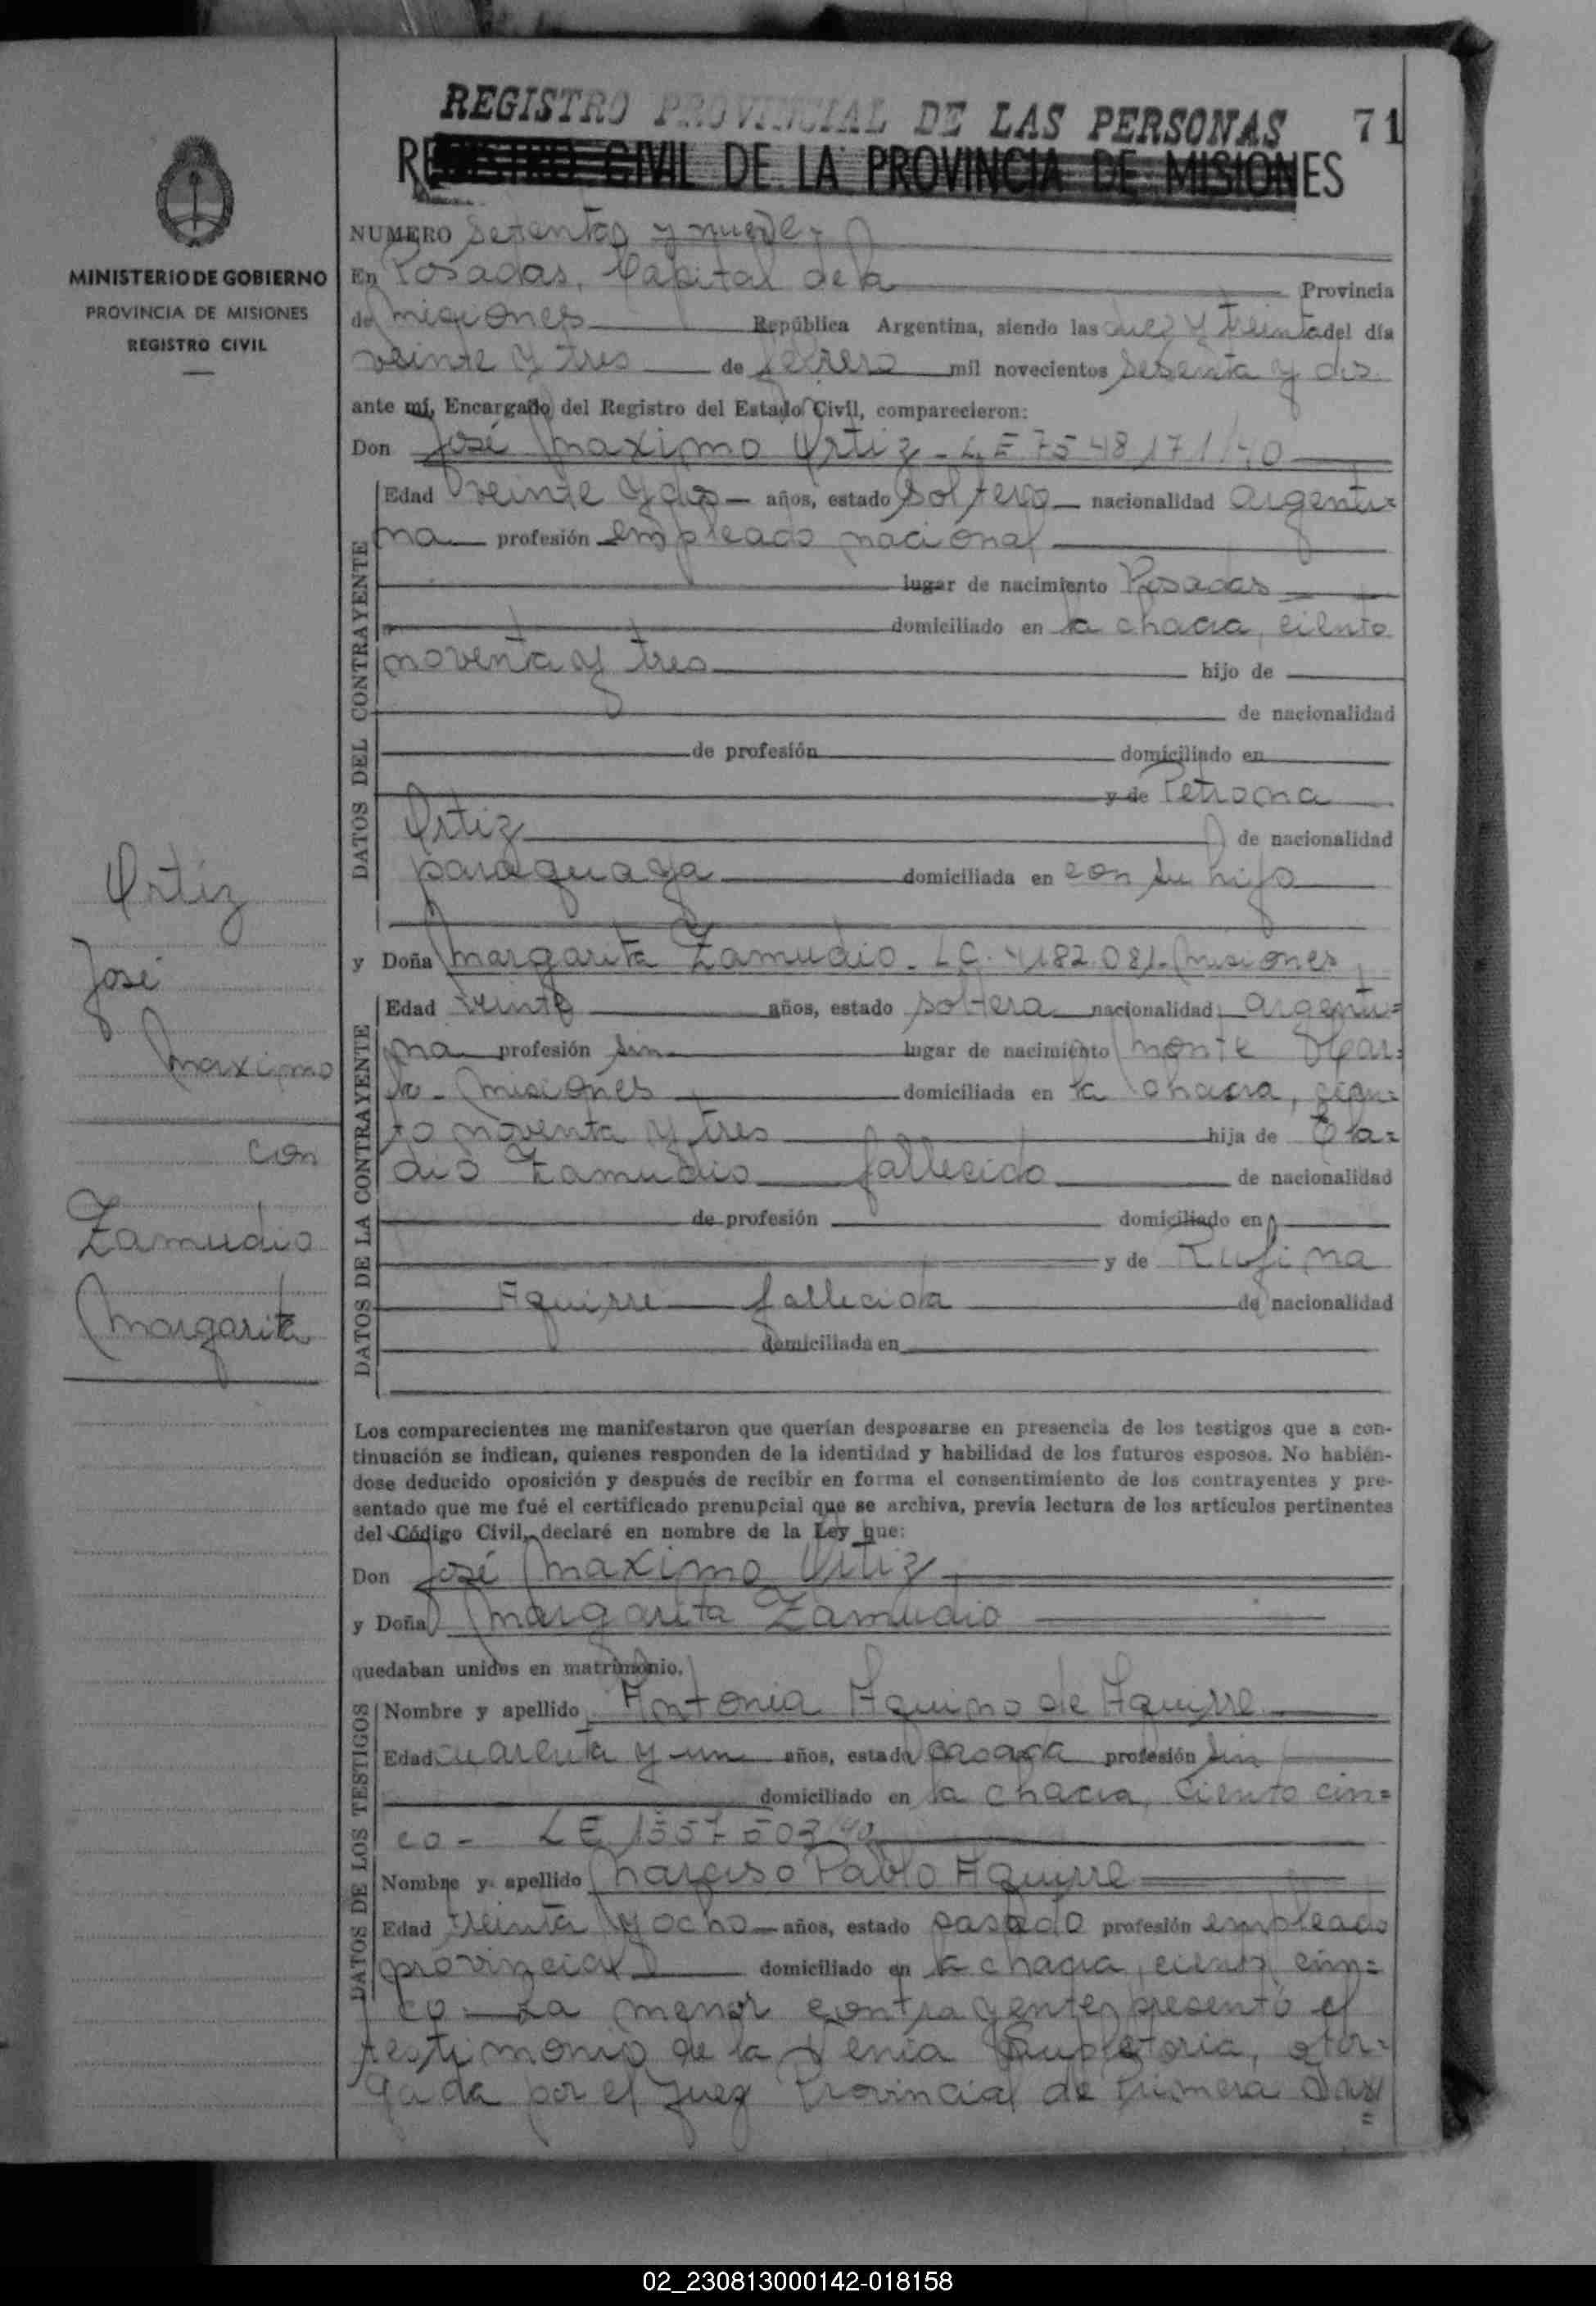 REGISTRO PROVINCIAL DE LAS PERSONAS 71
REGISTRO CIVIL DE LA PROVINCIA DE MISIONES
MINISTERIO DE GOBIERNO
PROVINCIA DE MISIONES
REGISTRO CIVIL
Ortiz
José
Maximo
con
Zamudio
Margarita
NUMERO setenta y nueve
En Posadas, Capital de la Provincia
de Misiones República Argentina, siendo las diez y treinta del día
veinte y tres de febrero mil novecientos sesenta y dos
ante mí, Encargado del Registro del Estado Civil, comparecieron:
Don José Maximo Ortiz - L E 75 48 171/40
DATOS DEL CONTRAYENTE
Edad veinte y dos años, estado soltero nacionalidad argenti=
na profesión empleado nacional
lugar de nacimiento Posadas
domiciliado en la chacra, ciento
noventa y tres hijo de
de nacionalidad
de profesión domiciliado en
y de Petrona
Ortiz de nacionalidad
paraguaya domiciliada en con su hijo
y Doña Margarita Zamudio - L C. 4182.081 - Misiones
DATOS DE LA CONTRAYENTE
Edad veinte años, estado soltera nacionalidad argenti=
na profesión sin lugar de nacimiento Monte
Misiones domiciliada en la chacra, cien=
to noventa y tres hija de Ela=
dio Zamudio fallecido de nacionalidad
de profesión domiciliado en
y de Rufina
Aguirre fallecida de nacionalidad
domiciliada en
Los comparecientes me manifestaron que querían desposarse en presencia de los testigos que a con-
tinuación se indican, quienes responden de la identidad y habilidad de los futuros esposos. No habién-
dose deducido oposición y después de recibir en forma el consentimiento de los contrayentes y pre-
sentado que me fué el certificado prenupcial que se archiva, previa lectura de los artículos pertinentes
del Código Civil, declaré en nombre de la Ley que:
Don José Maximo Ortiz
y Doña Margarita Zamudio
quedaban unidos en matrimonio.
DATOS DE LOS TESTIGOS
Nombre y apellido Antonia Aquino de Aguirre
Edad cuarenta y un años, estado casada profesión sin
domiciliado en la chacra, ciento cin=
co - L E 1557 503
Nombre y apellido Narciso Pablo Aguirre
Edad treinta y ocho años, estado casado profesión empleado
provincial domiciliado en la chacra, ciento cin=
co - La menor contrayente presentó el
testimonio de la Venia Supletoria, otor=
gada por el Juez Provincial de Primera Ins
=
02_230813000142-018158